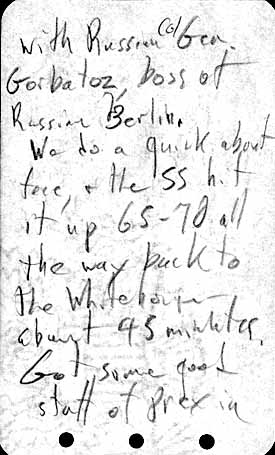 with Russian (Col) Gen.
Gorbatoz, boss of
Russian Berlin.
We do a quick about
face, + the SS hit
it up 65-70 all
the way back to
the Whitehouse
about 45 minutes.
Got some good
stuff of Prex in